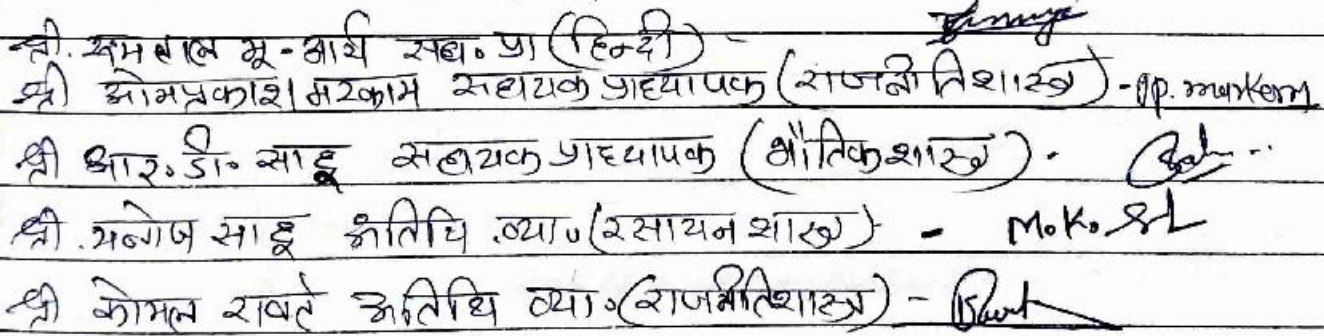 श्री. रामलाल भू-आर्य सहा. प्रा (हिन्दी) -
श्री ओमप्रकाश मरकाम सहायक प्राध्यापक (राजनीतिशास्त्र) - op. markam
श्री आर. डी. साहू सहायक प्राध्यापक (भौतिकशास्त्र) .
श्री . मनोज साहू अतिथि .व्या. (रसायन शास्त्र) - M.K.
श्री कोमल रावटे अतिथि व्या. (राजनीतिशास्त्र) -